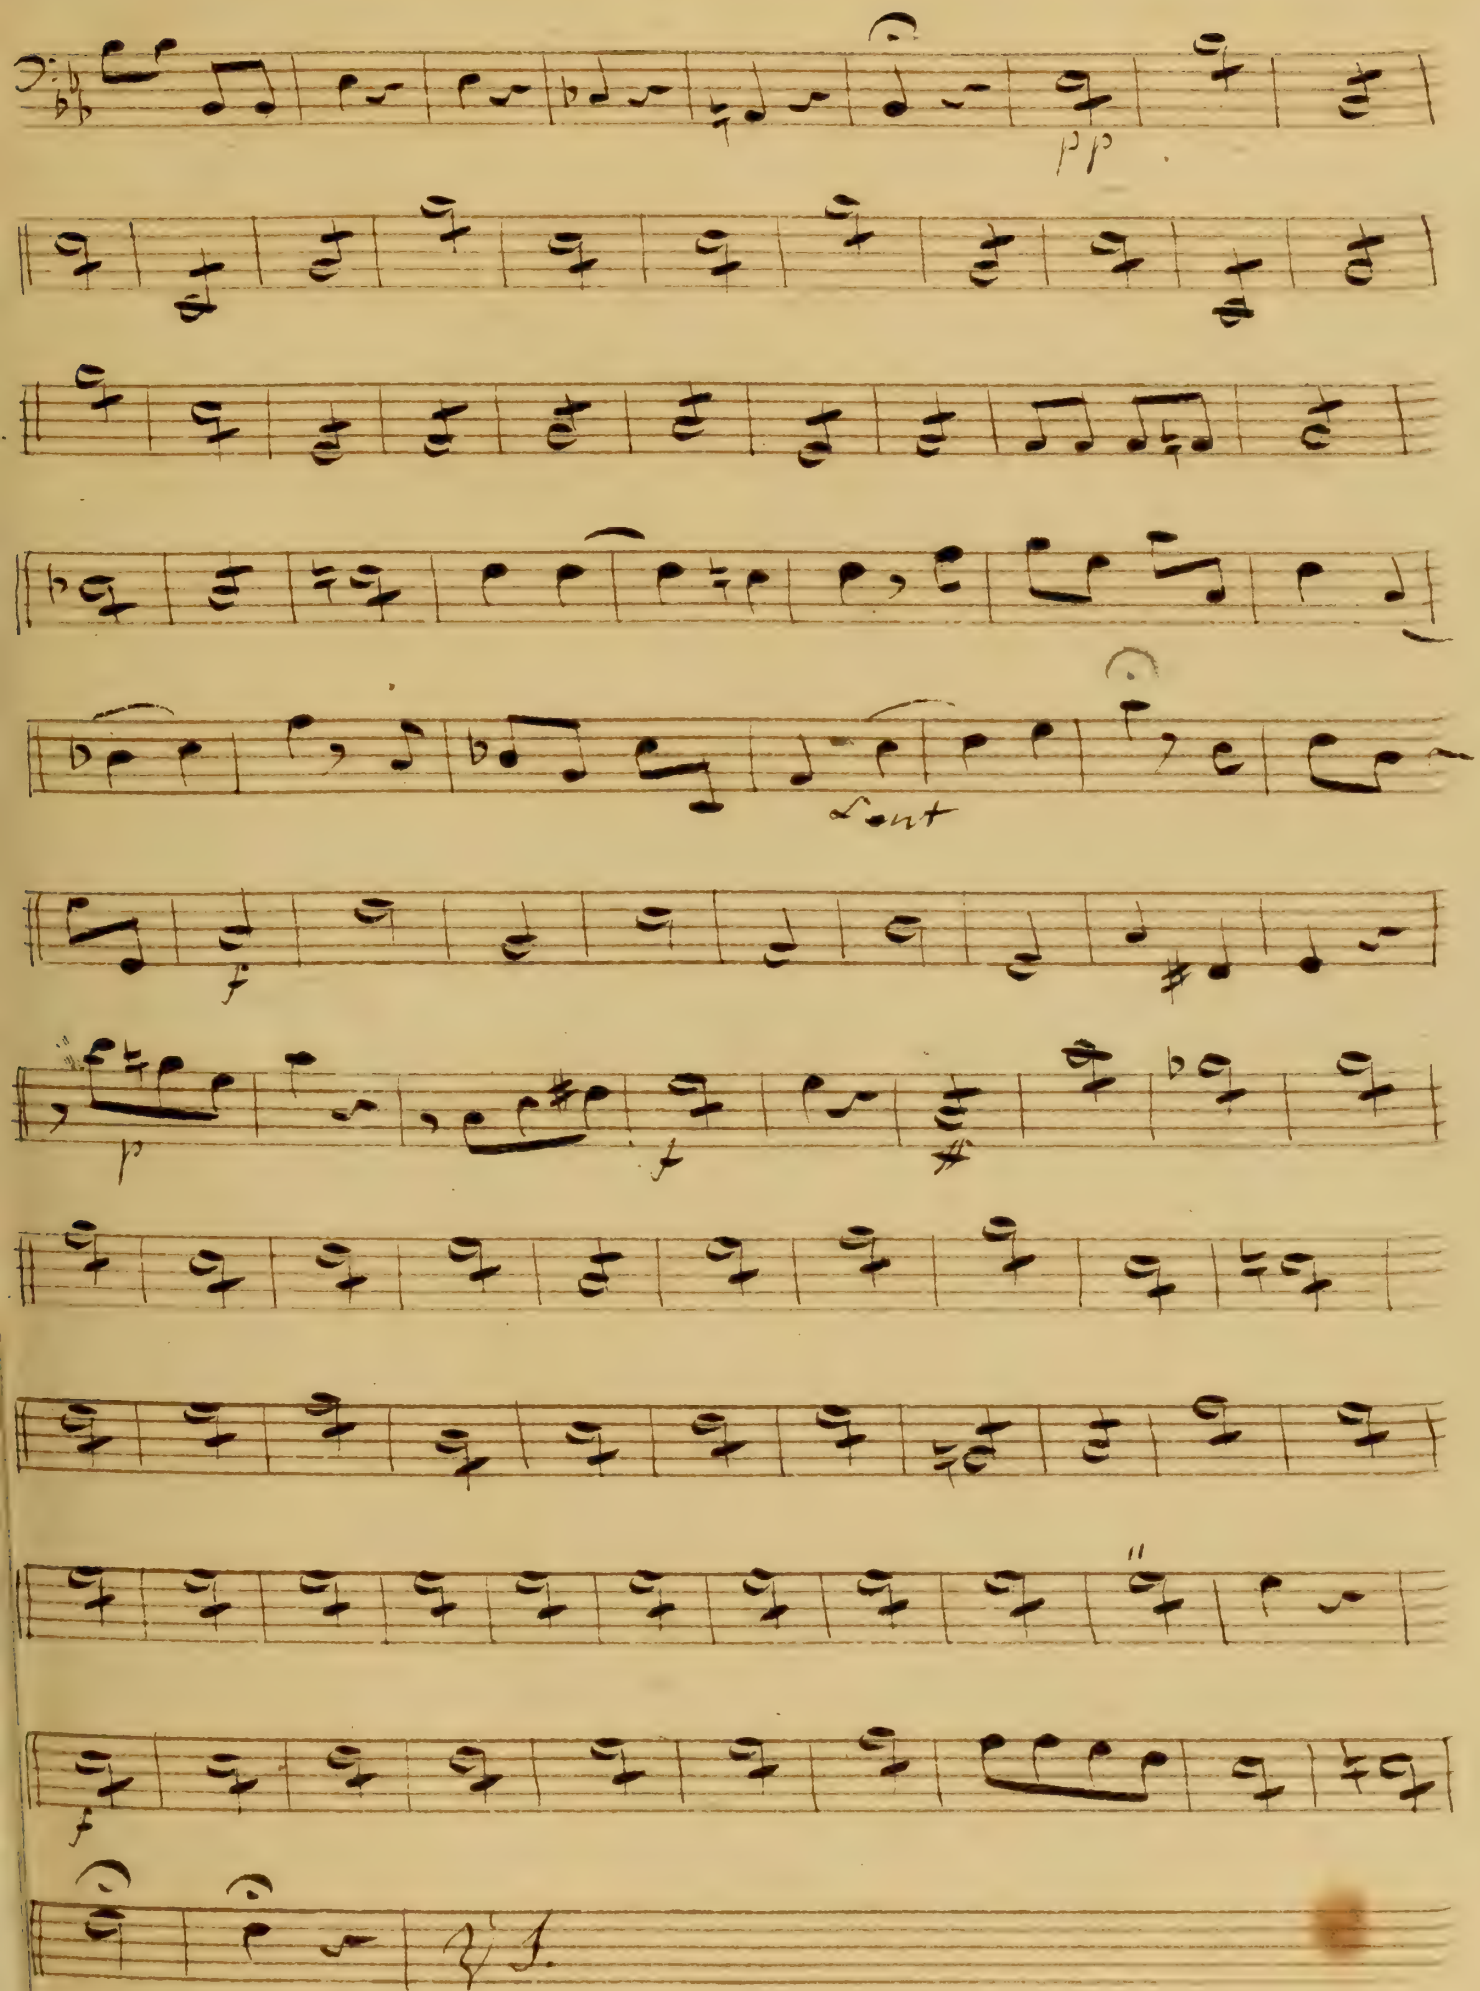 pp
Lent
f
p f
f
V S.